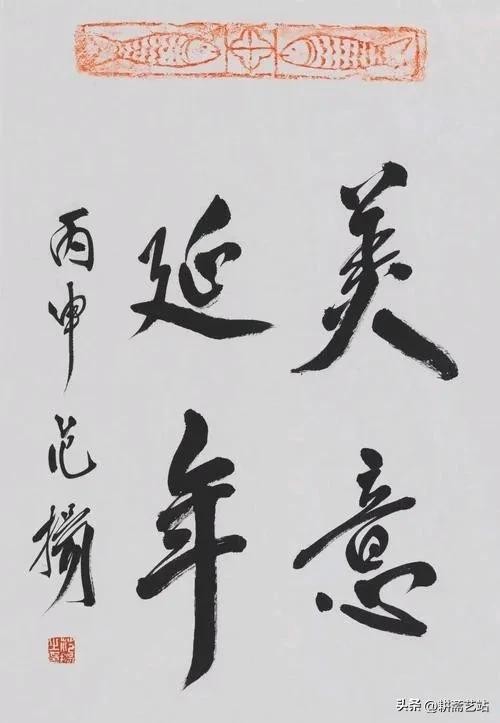 美意
延年
丙申范扬
头条 @耕斋艺站